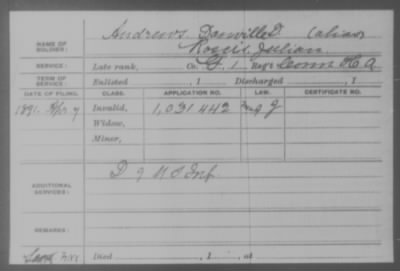 Andrews Danville D. (alias)
NAME OF SOLDIER:
Roscis Julian
SERVICE: Late rank, Co. G, 1 Reg't Conn H. A.
TERM OF SERVICE: Enlisted , 1 Discharged , 1
DATE OF FILING. CLASS. APPLICATION NO. LAW. CERTIFICATE NO.
1891. Apr 7 Invalid, 1,031 442 J
Widow,
Minor,
ADDITIONAL SERVICES: D 9 U S Inf.
REMARKS:
Died , 1 , at